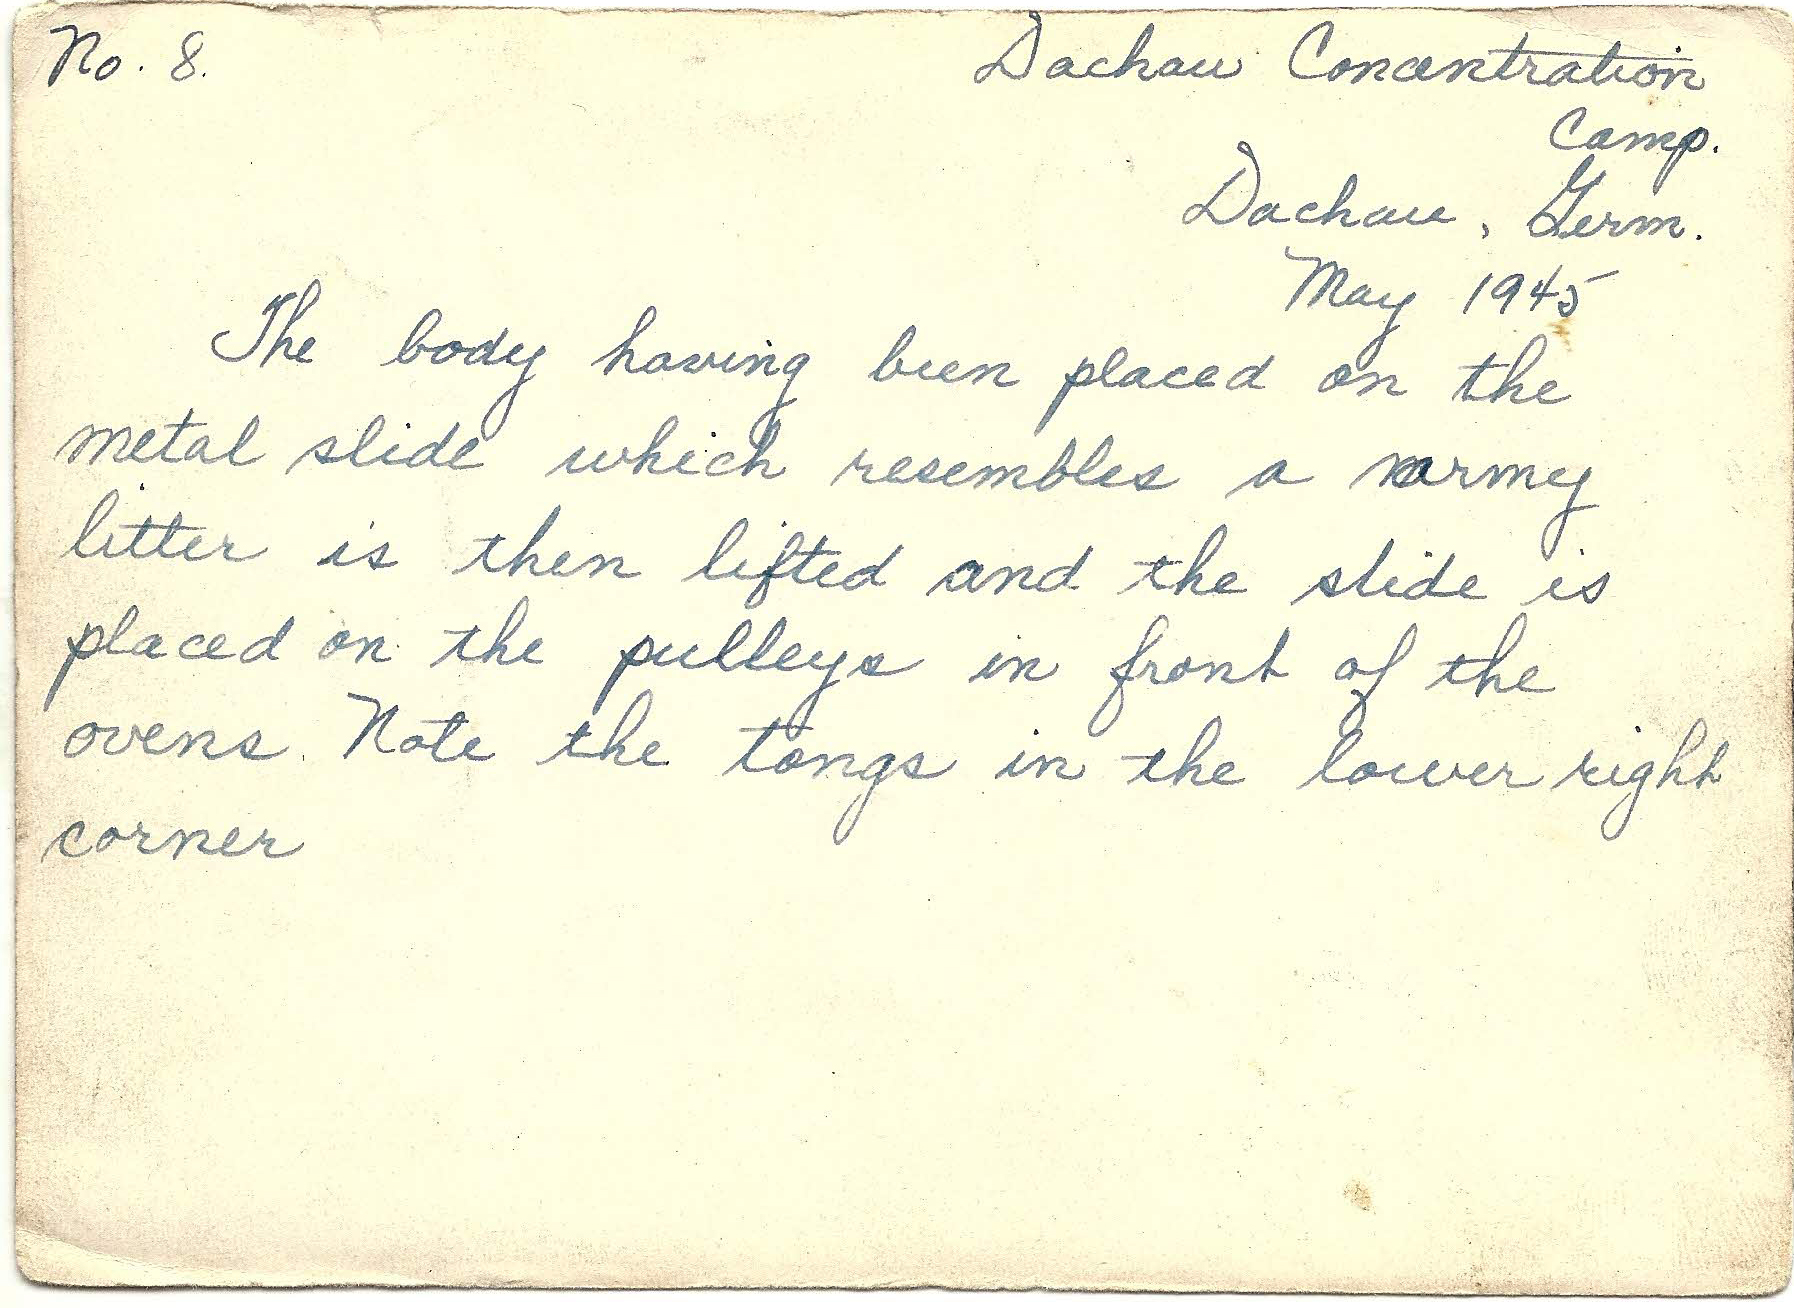 No. 8.
Dachau Concentration
Camp.
Dachau, Germ.
May 1945
The body having been placed on the
metal slide which resembles a narmy
litter is then lifted and the slide is
placed on the pulleys in front of the
ovens. Note the tongs in the lower right
corner